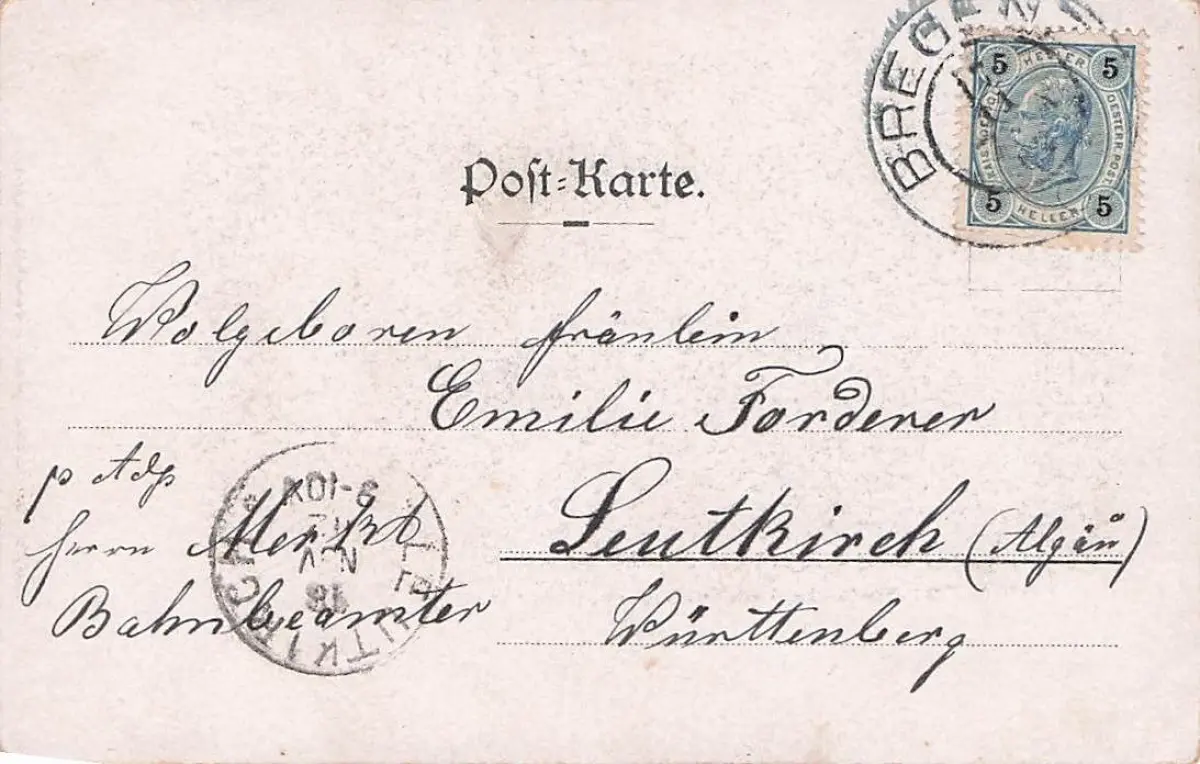 BREG
5 HELLER 5
OESTERR. POST
5 HELLER 5
Post-Karte.
Wolgeboren fräulein
Emilie Forderer
p Adp
Herrn Merkt
Bahnbeamter
Leutkirch (Algäu)
Württenberg
LEUTKIRCH
18 NOV
9-10V